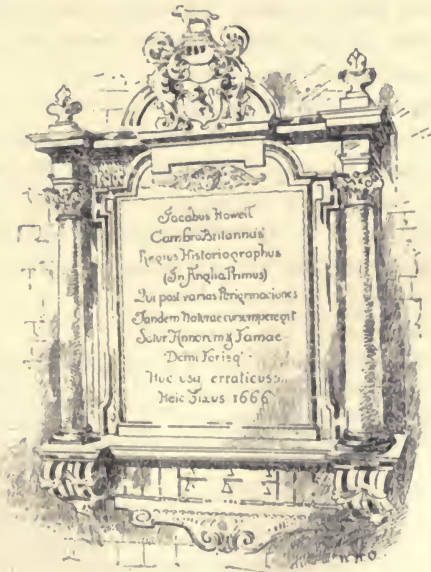 Jacobus Howell
CambroBritannus
Regius Historiographus
(In Anglia Primus)
Qui post varias Perigrinaciones
Tandem Naturae cursum peregit
Satur Annorum & Famae
Domi Forisq'
Huc usq erraticus
Heic Fixus 1666